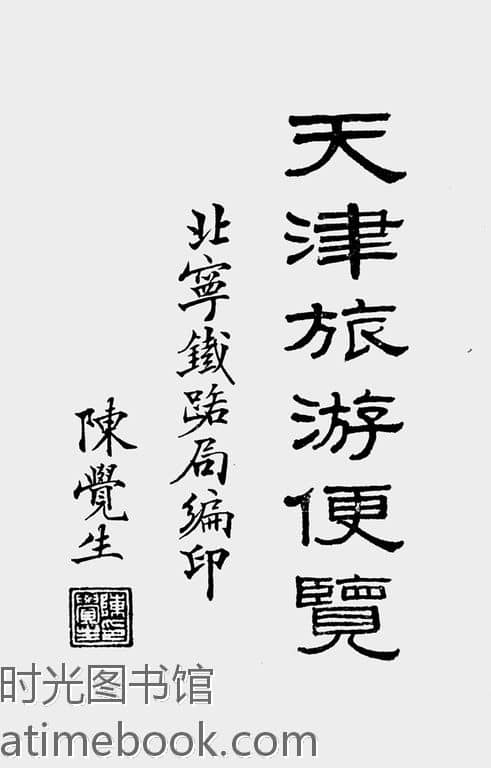 天津旅游便覽
北寧鐵路局編印
陳覺生
陳覺生印
时光图书馆
atimebook.com